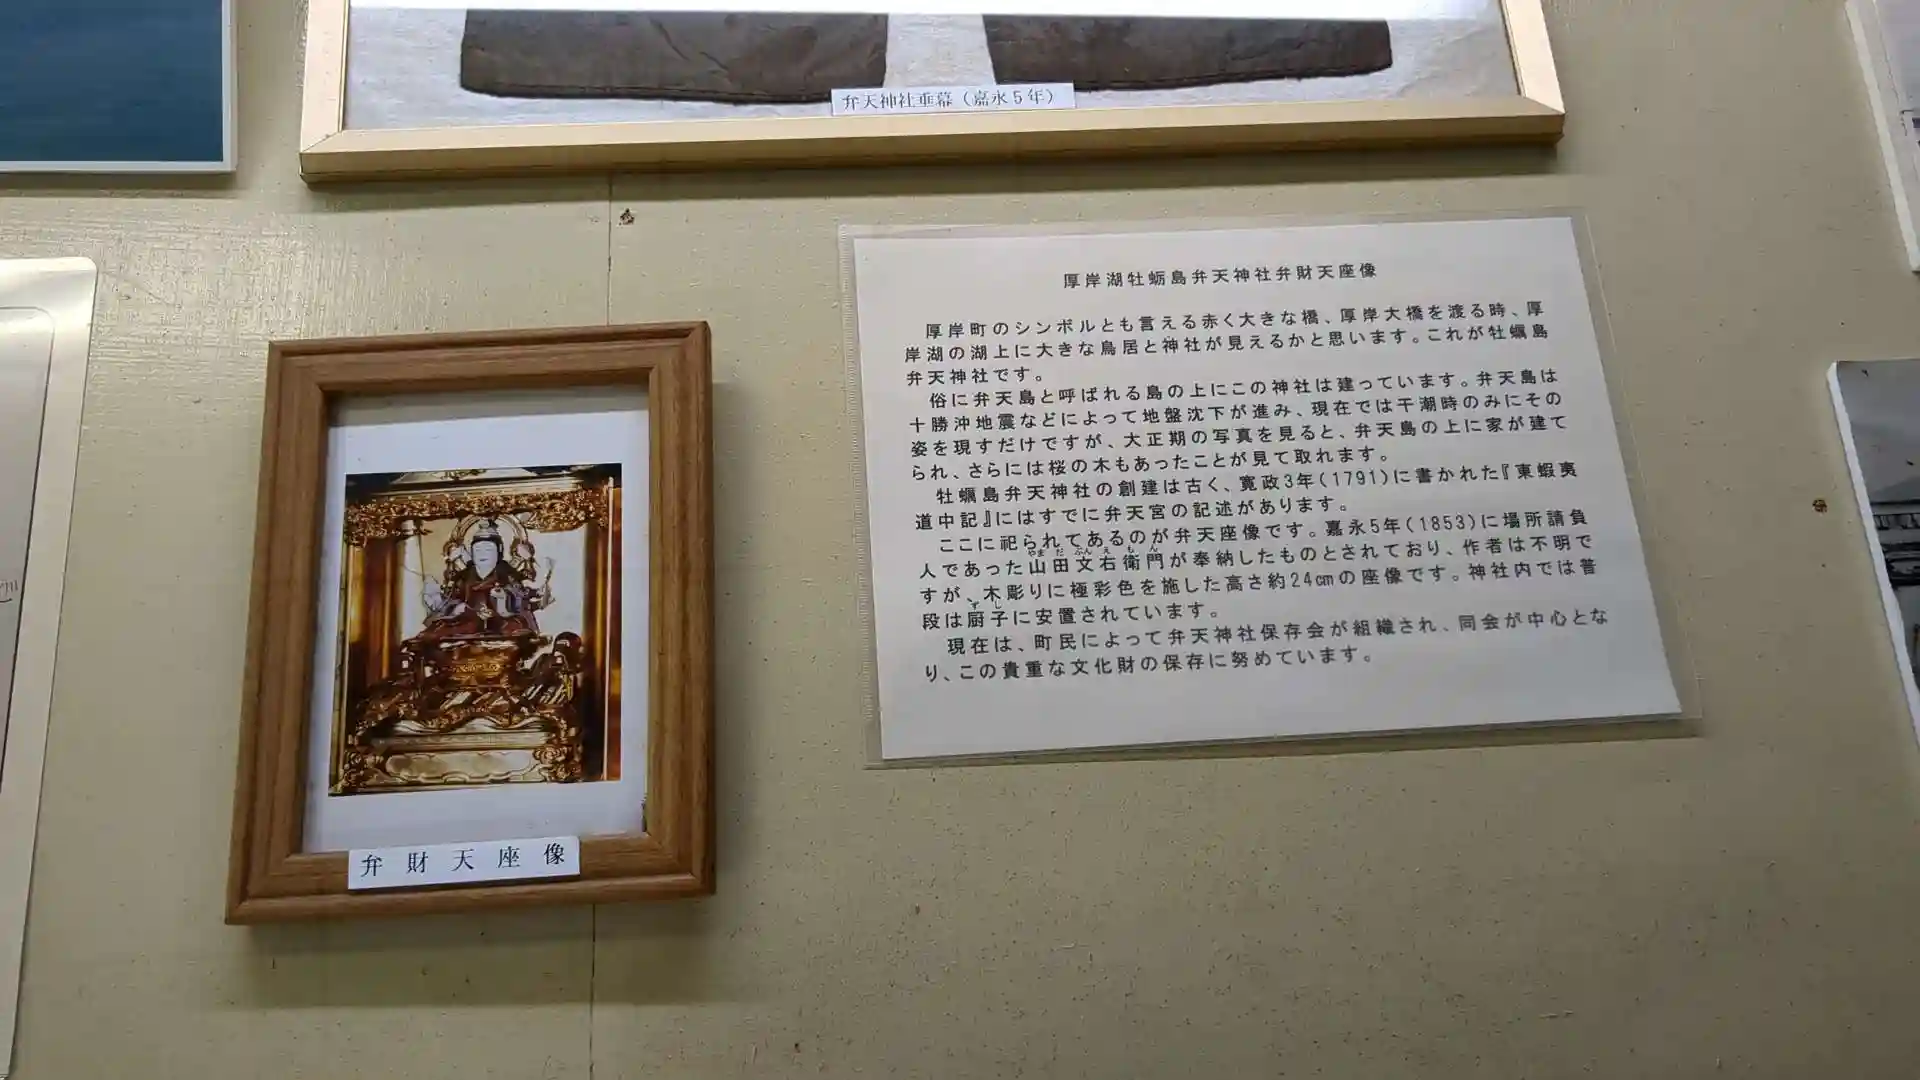 弁天神社垂幕（嘉永５年）
厚岸湖牡蛎島弁天神社弁財天座像
厚岸町のシンボルとも言える赤く大きな橋、厚岸大橋を渡る時、厚
岸湖の湖上に大きな鳥居と神社が見えるかと思います。これが牡蠣島
弁天神社です。
俗に弁天島と呼ばれる島の上にこの神社は建っています。弁天島は
十勝沖地震などによって地盤沈下が進み、現在では干潮時のみにその
姿を現すだけですが、大正期の写真を見ると、弁天島の上に家が建て
られ、さらには桜の木もあったことが見て取れます。
牡蠣島弁天神社の創建は古く、寛政3年(1791)に書かれた『東蝦夷
道中記』にはすでに弁天宮の記述があります。
ここに祀られてあるのが弁天座像です。嘉永5年(1853)に場所請負
やま だ ぶん え もん
人であった山田文右衛門が奉納したものとされており、作者は不明で
すが、木彫りに極彩色を施した高さ約24㎝の座像です。神社内では普
ずし
段は厨子に安置されています。
現在は、町民によって弁天神社保存会が組織され、同会が中心とな
り、この貴重な文化財の保存に努めています。
弁財天座像